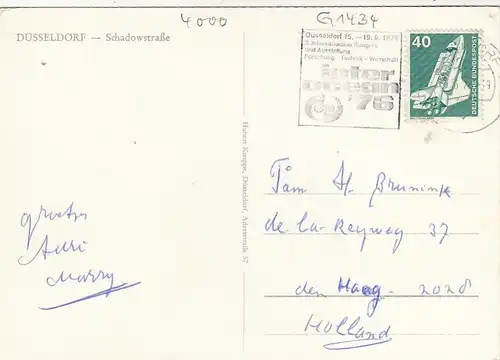 4000
G1434
DÜSSELDORF — Schadowstraße
Düsseldorf 15. – 19. 6. 1976
3. Internationaler Kongress
und Ausstellung
Forschung · Technik · Wirtschaft
inter
ocean
'76
40
DEUTSCHE BUNDESPOST
Hubert Knuppe, Düsseldorf, Adersstraße 57
groetjes
Adri
Marry
Fam H. Bruinink
de la Reyweg 37
den Haag - 2028
Holland